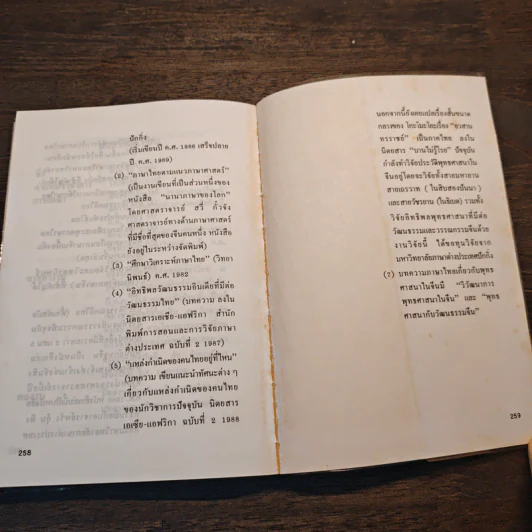 ปักกิ่ง
(เริ่มเขียนปี ค.ศ. 1986 เสร็จปลาย
ปี ค.ศ. 1989)
(2) "ภาษาไทยตามแนวภาษาศาสตร์"
(เป็นงานเขียนที่เป็นส่วนหนึ่งของ
หนังสือ "นานาภาษาของโลก"
โดยศาสตราจารย์ สวี่ กั๋วจัง
ศาสตราจารย์ทางด้านภาษาศาสตร์
ที่มีชื่อที่สุดของจีนคนหนึ่ง หนังสือ
ยังอยู่ในระหว่างจัดพิมพ์)
(3) "ศึกษาวิเคราะห์ภาษาไทย" (วิทยา
นิพนธ์) ค.ศ. 1982
(4) "อิทธิพลวัฒนธรรมอินเดียที่มีต่อ
วัฒนธรรมไทย" (บทความ ลงใน
นิตยสารเอเซีย-แอฟริกา สำนัก
พิมพ์การสอนและการวิจัยภาษา
ต่างประเทศ ฉบับที่ 2 1987)
(5) "แหล่งกำเนิดของคนไทยอยู่ที่ไหน"
(บทความ เขียนแนะนำทัศนะต่าง ๆ
เกี่ยวกับแหล่งกำเนิดของคนไทย
ของนักวิชาการปัจจุบัน นิตยสาร
เอเซีย-แอฟริกา ฉบับที่ 2 1988
258
นอกจากนี้ยังเคยแปลเรื่องสั้นขนาด
กลางของ โดยเรื่อง "อวสาน
ทรราชย์" เป็นภาคไทย ลงใน
นิตยสาร "บานไม่รู้โรย" ปัจจุบัน
กำลังทำวิจัยประวัติพุทธศาสนาใน
จีนอยู่โดยจะวิจัยทั้งสายมหายาน
สายเถรวาท (ในสิบสองปันนา)
และสายวัชรยาน (ในธิเบต) รวมทั้ง
วิจัยอิทธิพลพุทธศาสนาที่มีต่อ
วัฒนธรรมและวรรณกรรมจีนด้วย
งานวิจัยนี้ ได้ขอทุนวิจัยจาก
มหาวิทยาลัยภาษาต่างประเทศปักกิ่ง
(7) บทความภาษาไทยเกี่ยวกับพุทธ
ศาสนาในจีนมี "วิวัฒนาการ
พุทธศาสนาในจีน" และ "พุทธ
ศาสนากับวัฒนธรรมจีน"
259